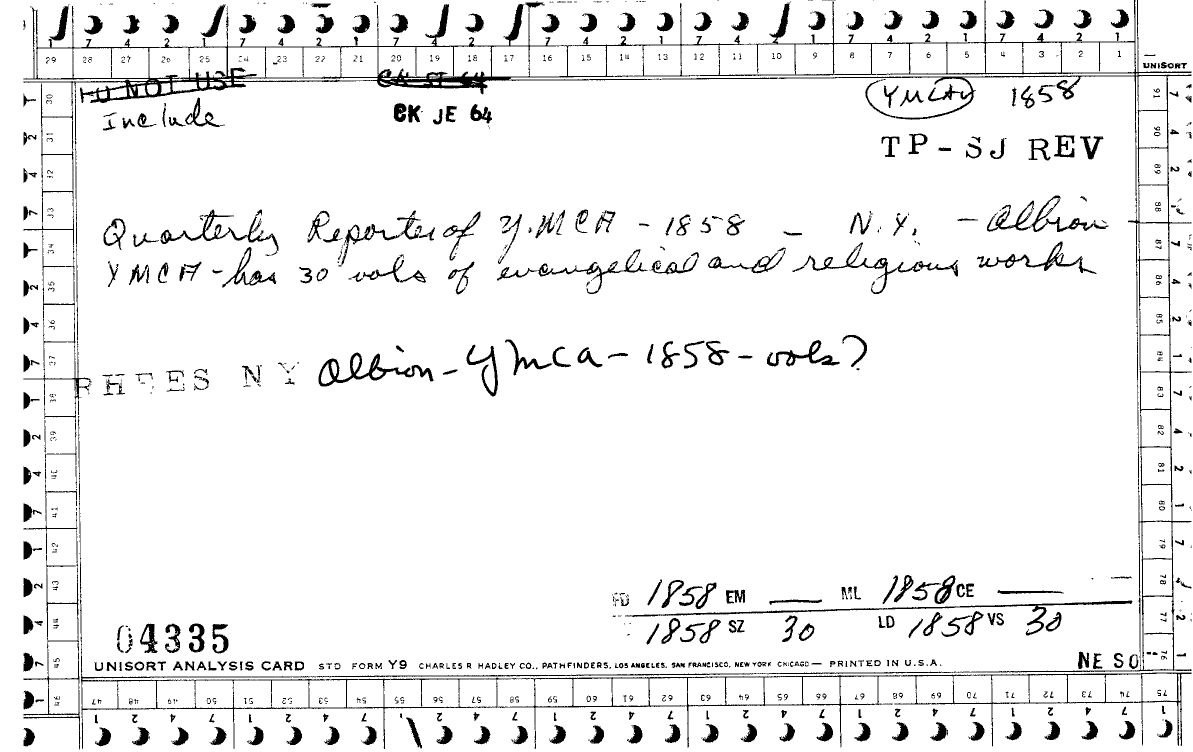 7 4 2 1 7 4 2 1 7 4 2 1 7 4 2 1 7 4 2 1 7 4 2 1 7 4 2 1
29 28 27 26 25 24 23 22 21 20 19 18 17 16 15 14 13 12 11 10 9 8 7 6 5 4 3 2 1
UNISORT
DO NOT USE CK ST 64
Include CK JE 64 YMCAV 1858
TP-SJ REV
Quarterly Reporter of Y.M.C.A - 1858 - N.Y. - Albion
YMCA - has 30 vols of evangelical and religious works
RHEES NY Albion - YMCA - 1858 - vols?
FD 1858 EM — ML 1858 CE —
1858 SZ 30 LD 1858 VS 30
04335
UNISORT ANALYSIS CARD STD FORM Y9 CHARLES R. HADLEY CO., PATHFINDERS, LOS ANGELES, SAN FRANCISCO, NEW YORK CHICAGO — PRINTED IN U.S.A.
NE SO
30 31 32 33 34 35 36 37 38 39 40 41 42 43 44 45 46
91 90 89 88 87 86 85 84 83 82 81 80 79 78 77 76 75
47 48 49 50 51 52 53 54 55 56 57 58 59 60 61 62 63 64 65 66 67 68 69 70 71 72 73 74